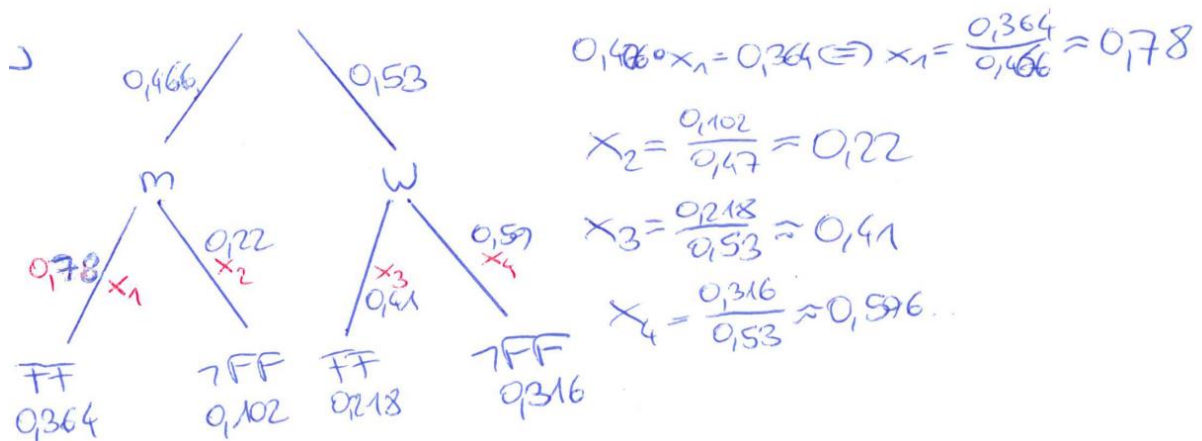 0,466 0,53
m W
0,78 x₁ 0,22 x₂ x₃ 0,41 0,59 x₄
FF ¬FF FF ¬FF
0,364 0,102 0,218 0,316
0,466·x₁=0,364⇔ x₁= 0,364/0,466 ≈ 0,78
x₂= 0,102/0,47 ≈ 0,22
x₃= 0,218/0,53 ≈ 0,41
x₄= 0,316/0,53 ≈0,596